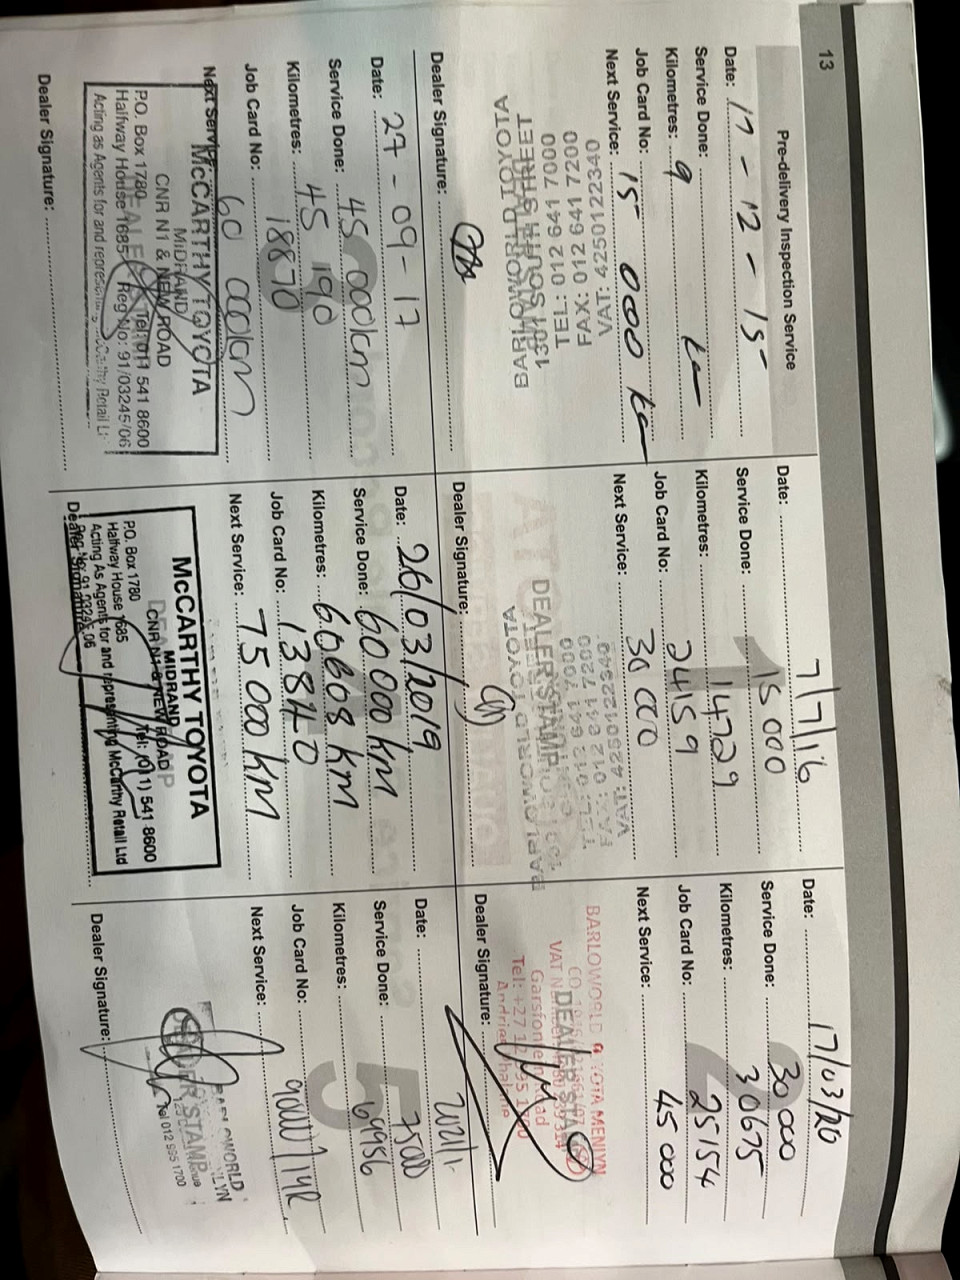 13
Pre-delivery Inspection Service
Date: 17 - 12 - 15
Service Done:
Kilometres: 9 km
Job Card No:
Next Service: 15 000 km
VAT: 4250122340
FAX: 012 641 7200
TEL: 012 641 7000
BARLOWORLD TOYOTA
Dealer Signature:
Date: 7/7/16
Service Done: 15 000
Kilometres: 14729
Job Card No: 24159
Next Service: 30 000
DEALER STAMP
Dealer Signature:
Date: 17/03/20
Service Done: 30 000
Kilometres: 30675
Job Card No: 25154
Next Service: 45 000
2
BARLOWORLD TOYOTA MENLYN
DEALER STAMP
Dealer Signature:
Date: 27 - 09 - 17
Service Done: 45 000km
Kilometres: 45 190
Job Card No: 18870
Next Service: 60 000km
McCARTHY TOYOTA
MIDRAND
CNR N1 & NEW ROAD
P.O. Box 1780 Tel: 011 541 8600
Halfway House 1685 Reg No: 91/03245/06
Acting as Agents for and
Dealer Signature:
Date: 26/03/2019
Service Done: 60 000 km
Kilometres: 60608 KM
Job Card No: 13840
Next Service: 75 000 KM
McCARTHY TOYOTA
MIDRAND
CNR N1 & NEW ROAD
P.O. Box 1780 Tel: (011) 541 8600
Halfway House 1685
Acting As Agents for and representing McCarthy Retail Ltd
Dealer Signature:
Date:
Service Done: 75000
Kilometres: 69956
Job Card No:
Next Service: 90000/1YR
5
DEALER STAMP
Tel 012 995 1700
Dealer Signature: